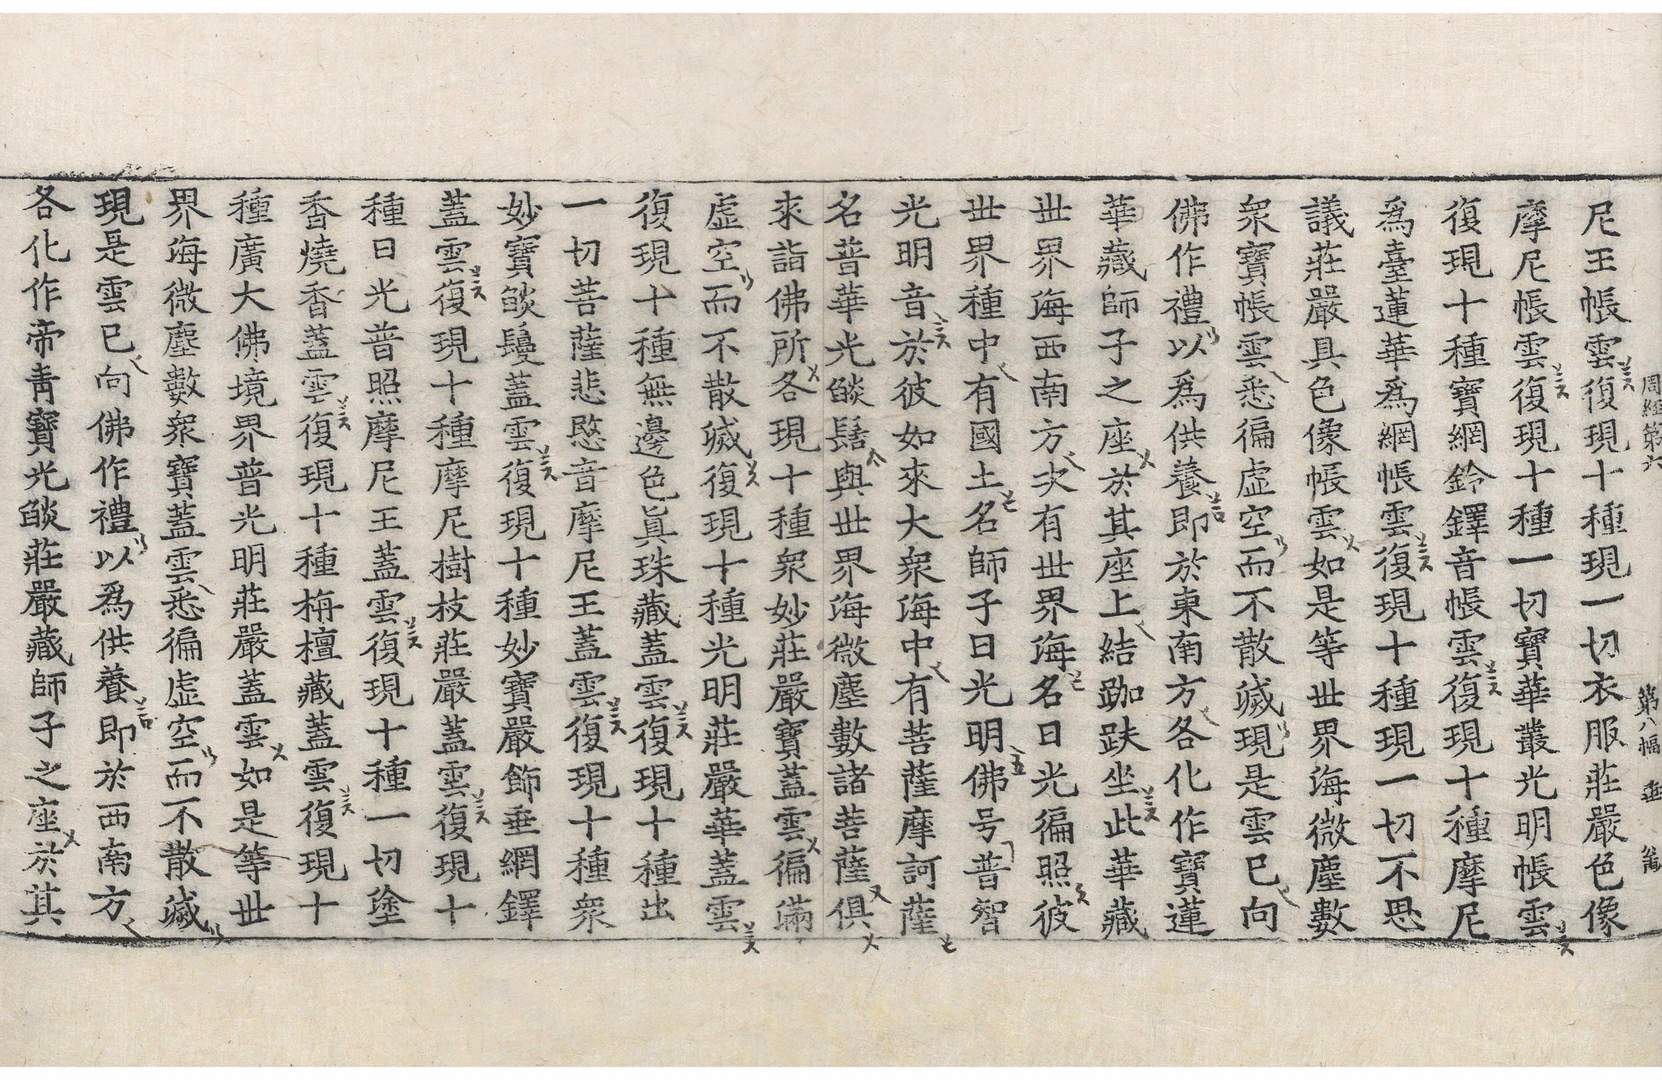 周經第六 第八幅
尼王帳雲復現十種現一切衣服莊嚴色像
摩尼帳雲復現十種一切寶華叢光明帳雲
復現十種寶網鈴鐸音帳雲復現十種摩尼
爲臺蓮華爲網帳雲復現十種現一切不思
議莊嚴具色像帳雲如是等世界海微塵數
衆寶帳雲悉徧虛空而不散滅現是雲已向
佛作禮以爲供養即於東南方各化作寶蓮
華藏師子之座於其座上結跏趺坐此華藏
世界海西南方次有世界海名日光徧照彼
世界種中有國土名師子日光明佛号普智
光明音於彼如來大衆海中有菩薩摩訶薩
名普華光𦦨髻與世界海微塵數諸菩薩俱
來詣佛所各現十種衆妙莊嚴寶蓋雲徧滿
虛空而不散滅復現十種光明莊嚴華蓋雲
復現十種無邊色眞珠藏蓋雲復現十種出
一切菩薩悲愍音摩尼王蓋雲復現十種衆
妙寶𦦨鬘蓋雲復現十種妙寶嚴飾垂網鐸
蓋雲復現十種摩尼樹枝莊嚴蓋雲復現十
種日光普照摩尼王蓋雲復現十種一切塗
香燒香蓋雲復現十種栴檀藏蓋雲復現十
種廣大佛境界普光明莊嚴蓋雲如是等世
界海微塵數衆寶蓋雲悉徧虛空而不散滅
現是雲已向佛作禮以爲供養即於西南方
各化作帝青寶光𦦨莊嚴藏師子之座於其